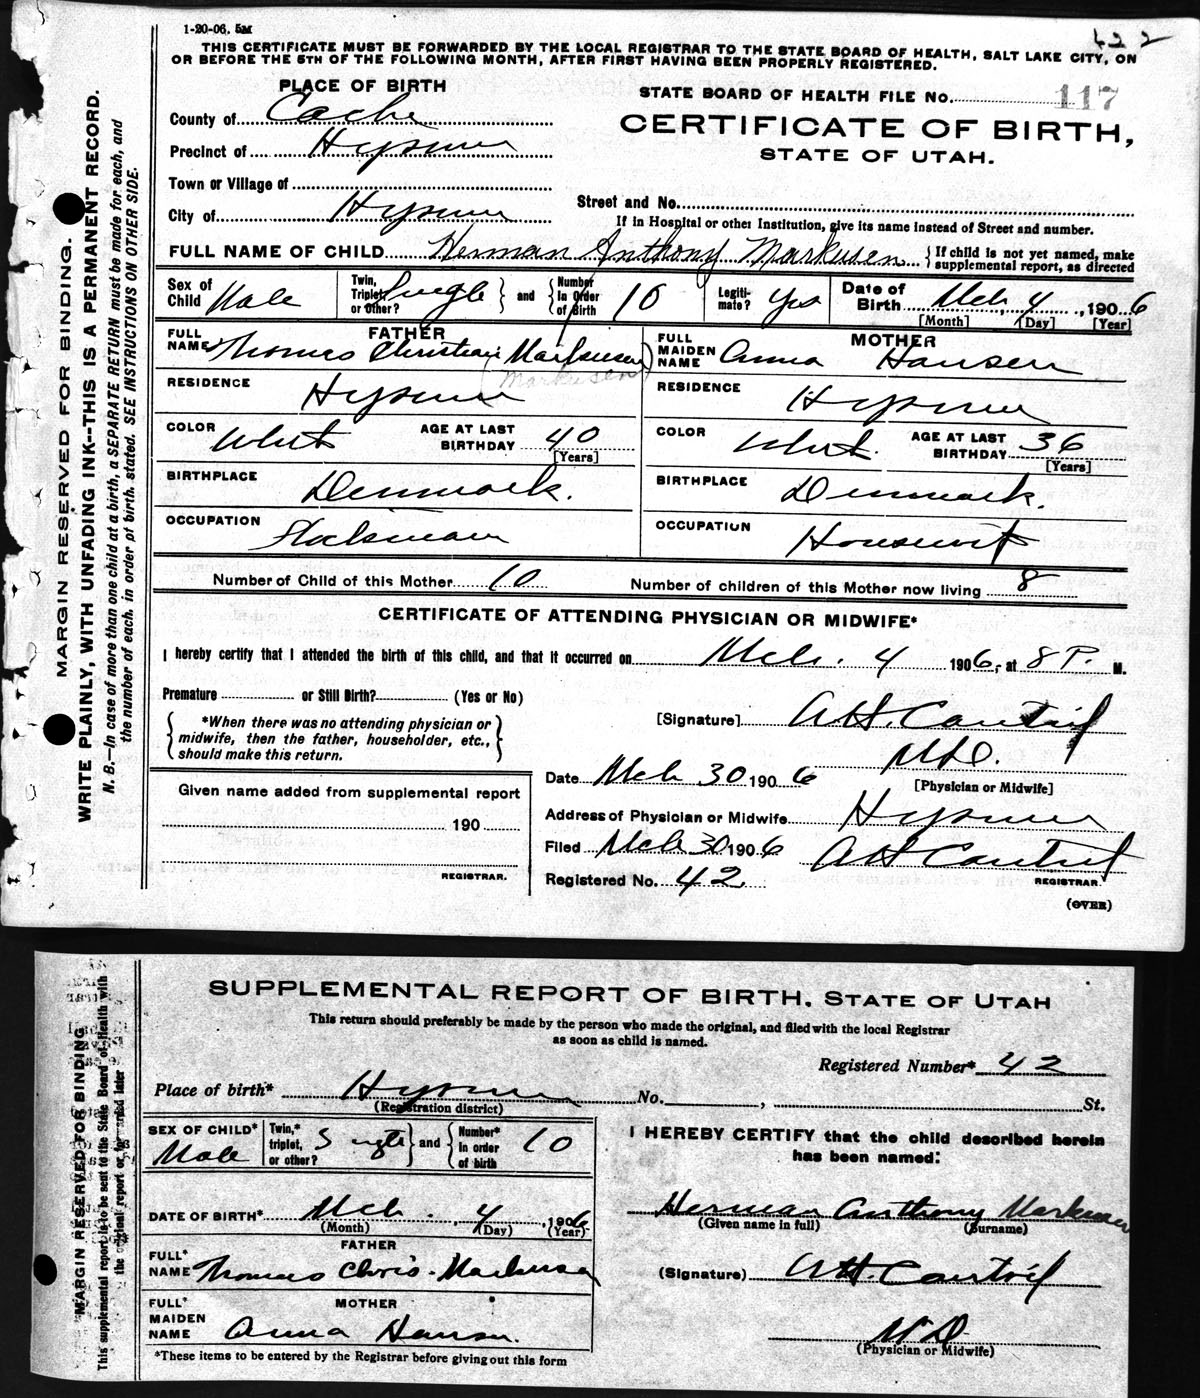 1-20-06. 5M
422
THIS CERTIFICATE MUST BE FORWARDED BY THE LOCAL REGISTRAR TO THE STATE BOARD OF HEALTH, SALT LAKE CITY, ON
OR BEFORE THE 5TH OF THE FOLLOWING MONTH, AFTER FIRST HAVING BEEN PROPERLY REGISTERED.
PLACE OF BIRTH
STATE BOARD OF HEALTH FILE NO. 117
County of Cache
CERTIFICATE OF BIRTH,
Precinct of Hyrum
STATE OF UTAH.
Town or Village of
Street and No.
City of Hyrum
If in Hospital or other Institution, give its name instead of Street and number.
FULL NAME OF CHILD Herman Anthony Markusen
{If child is not yet named, make supplemental report, as directed
Sex of Child Male
Twin, Triplet, or Other? Single } and { Number in Order of Birth 10
Legitimate? Yes
Date of Birth Mch 4, 1906
[Month] [Day] [Year]
FATHER
FULL NAME Thomas Christian Markusen
(Markusen)
MOTHER
FULL MAIDEN NAME Anna Hansen
RESIDENCE Hyrum
RESIDENCE Hyrum
COLOR White AGE AT LAST BIRTHDAY 40 [Years]
COLOR White. AGE AT LAST BIRTHDAY 36 [Years]
BIRTHPLACE Denmark.
BIRTHPLACE Denmark.
OCCUPATION
OCCUPATION Housewife
Number of Child of this Mother 10 Number of children of this Mother now living 8
CERTIFICATE OF ATTENDING PHYSICIAN OR MIDWIFE*
I hereby certify that I attended the birth of this child, and that it occurred on Mch. 4 1906, at 8 P. M.
Premature or Still Birth? (Yes or No)
{*When there was no attending physician or
midwife, then the father, householder, etc.,
should make this return.}
[Signature]
M.D.
[Physician or Midwife]
Date Mch 30 1906
Address of Physician or Midwife Hyrum
Filed Mch 30 1906
REGISTRAR.
Registered No. 42
(OVER)
Given name added from supplemental report
190
REGISTRAR.
MARGIN RESERVED FOR BINDING.
WRITE PLAINLY, WITH UNFADING INK--THIS IS A PERMANENT RECORD.
N. B.—In case of more than one child at a birth, a SEPARATE RETURN must be made for each, and
the number of each, in order of birth, stated. SEE INSTRUCTIONS ON OTHER SIDE.
SUPPLEMENTAL REPORT OF BIRTH, STATE OF UTAH
This return should preferably be made by the person who made the original, and filed with the local Registrar
as soon as child is named.
Registered Number* 42
Place of birth* Hyrum No. , St.
(Registration district)
SEX OF CHILD* Male
Twin,* triplet, or other? Single } and { Number* in order of birth 10
I HEREBY CERTIFY that the child described herein
has been named:
DATE OF BIRTH* Mch. 4, 1906
(Month) (Day) (Year)
Herman Anthony Markusen
(Given name in full) (Surname)
FATHER
FULL* NAME Thomas Chris. Markusen
(Signature)
MOTHER
FULL* MAIDEN NAME Anna Hansen.
M D
(Physician or Midwife)
*These items to be entered by the Registrar before giving out this form
MARGIN RESERVED FOR BINDING
This supplemental report is to be sent to the State Board of Health with
the original report or forwarded later